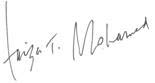 Faiza T. Mohamed